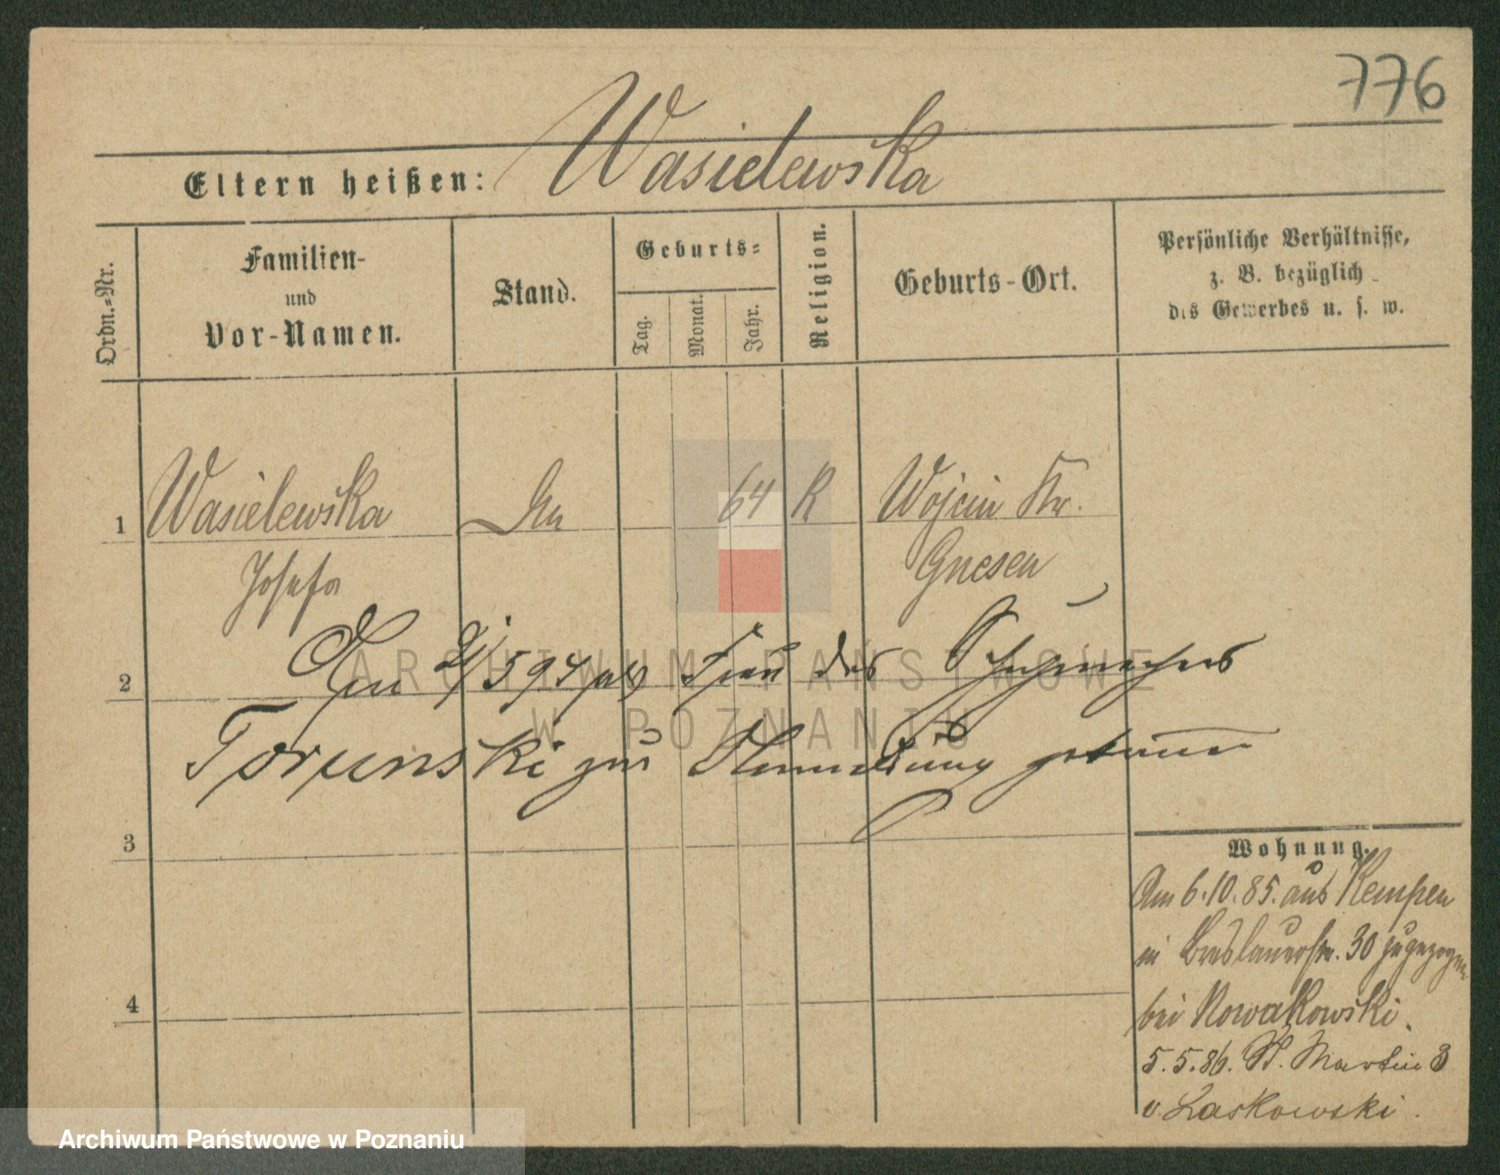 776
Eltern heißen: Wasielewska
Ordn.=Nr.
Familien-
und
Vor-Namen.
Stand.
Geburts=
Tag.
Monat.
Jahr.
Religion.
Geburts-Ort.
Persönliche Verhältnisse,
z. B. bezüglich
des Gewerbes u. s. w.
1 Wasielewska 64 K Wojcin Kr.
Josefa Gnesen
2 als Frau des
Torunski zur
3
4
Wohnung.
Am 6.10.85. aus Kempen
in Breslauerstr. 30 zugezogen
bei Nowakowski.
5.5.86. St. Martin 3
v. Laskowski.
ARCHIWUM PAŃSTWOWE
W POZNANIU
Archiwum Państwowe w Poznaniu